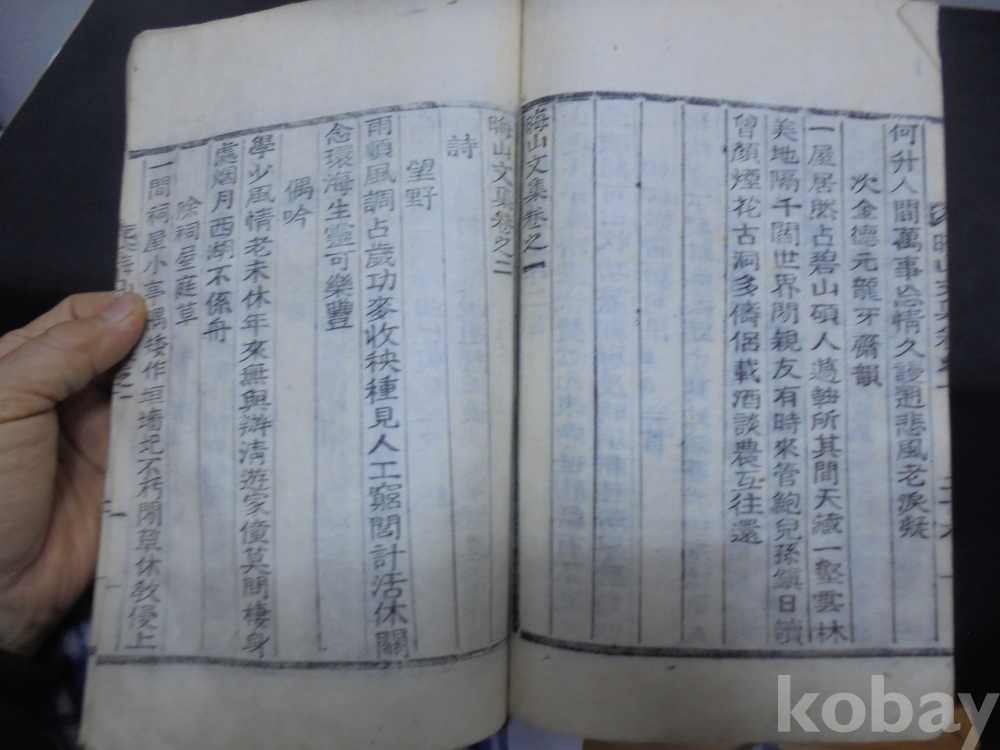 何升人間萬事忘情久謾遡悲風老淚凝
次金德元龍牙齋韻
一屋居然占碧山碩人薖軸所其間天藏一壑雲林
美地隔千閭世界閒親友有時來管鮑兒孫鎭日讀
曾顔煙花古洞多儔侶載酒談農互往還
晦山文集卷之一
晦山文集卷之二
詩
望野
雨順風調占歲功麥收秧種見人工窮閭計活休關
念環海生靈可樂豐
偶吟
學少風情老未休年來無與辦清遊家僮莫問棲身
處烟月西湖不係舟
除祠屋庭草
一間祠屋小亭隅棲作垣墻圮不朽閒草休敎侵上
kobay